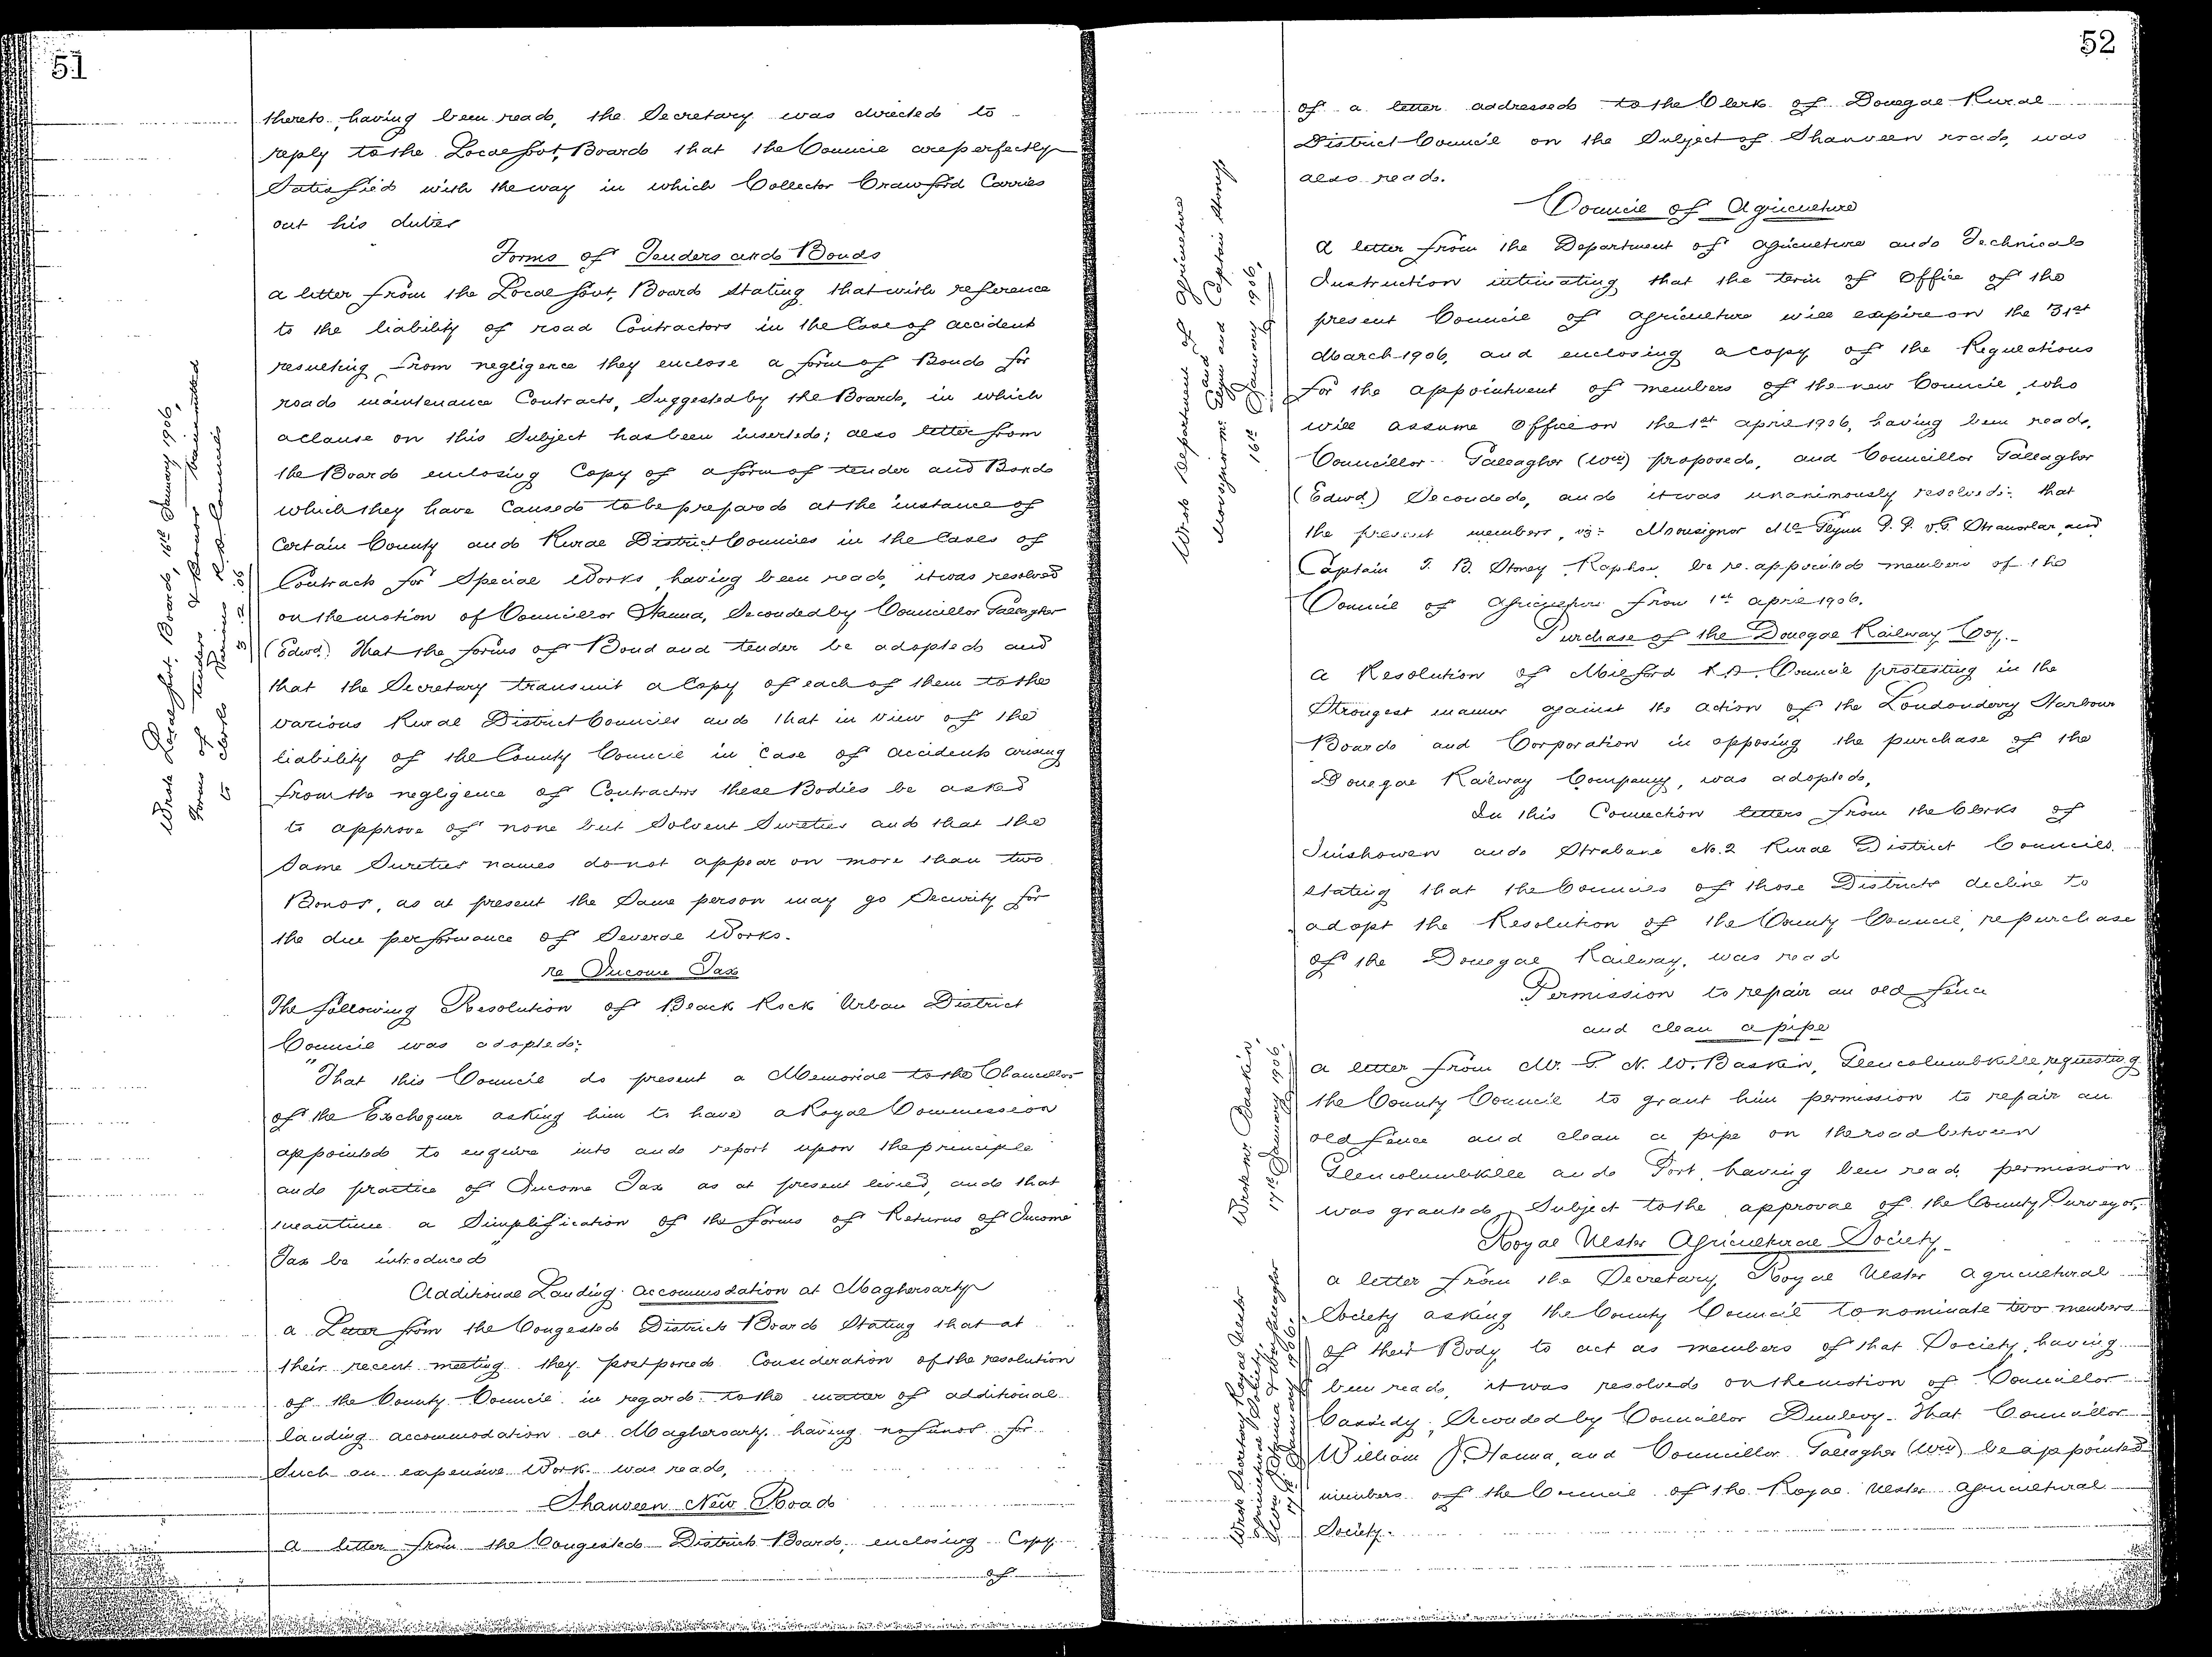 51
thereto, having been read, the Secretary was directed to
reply to the Local Govt, Board that the Council are perfectly
Satisfied with the way in which Collector Crawford Carries
out his duties
Forms of Tenders and Bonds
a letter from the Local Govt, Board stating that with reference
to the liability of road Contractors in the Case of accident
resulting from negligence they enclose a form of Bond for
road maintenance Contracts, Suggested by the Board, in which
a clause on this Subject has been inserted; also letter from
the Board enclosing Copy of a form of tender and Bond
which they have Caused to be prepared at the instance of
Certain County and Rural District Councils in the Cases of
Contracts for Special Works, having been read, it was resolved
on the motion of Councillor Hanna, Seconded by Councillor Gallagher
(Edwd.) That the forms of Bond and tender be adopted and
that the Secretary transmit a Copy of each of them to the
various Rural District Councils and that in view of the
liability of the County Council in Case of accidents arising
from the negligence of Contractors these Bodies be asked
to approve of none but Solvent Sureties and that the
Same Sureties names do not appear on more than two
Bonds, as at present the Same person may go Security for
the due performance of Several Works.
re Income Tax
The following Resolution of Black Rock Urban District
Council was adopted:
"That this Council do present a Memorial to the Chancellor
of the Exchequer asking him to have a Royal Commission
appointed to enquire into and report upon the principle
and practice of Income Tax as at present levied, and that
meantime a Simplification of the forms of Returns of Income
Tax be introduced"
Additional Landing accommodation at Magheroarty
a Letter from the Congested Districts Board Stating that at
their recent meeting they postponed Consideration of the resolution
of the County Council in regard to the matter of additional
landing accommodation at Magheroarty having no funds for
Such an expensive Work was read,
Shanveen New Road
a letter from the Congested Districts Board, enclosing Copy
of
Wrote Local Govt, Board, 16th January 1906,
Forms of tenders & Bonds transmitted
to Clerks Various R.D. Councils
3.2.06
52
of a letter addressed to the Clerk of Donegal Rural
District Council on the Subject of Shanveen road, was
also read.
Council of Agriculture
a letter from the Department of Agriculture and Technical
Instruction intimating that the term of Office of the
present Council of Agriculture will expire on the 31st
March 1906, and enclosing a copy of the Regulations
for the appointment of members of the new Council, who
will assume Office on the 1st april 1906, having been read,
Councillor Gallagher (Wm) proposed, and Councillor Gallagher
(Edwd.) Seconded, and it was unanimously resolved:- that
the present members, viz:- Monsignor Mc Glynn P.P. V.G. Stranorlar, and
Captain T. B. Stoney, Raphoe, be re.appointed members of the
Council of Agriculture from 1st april 1906.
Purchase of the Donegal Railway Coy.
a Resolution of Milford R.D. Council protesting in the
Strongest manner against the action of the Londonderry Harbour
Board and Corporation in opposing the purchase of the
Donegal Railway Company, was adopted,
In this Connection letters from the Clerks of
Inishowen and Strabane No. 2 Rural District Councils
stating that the Councils of those Districts decline to
adopt the Resolution of the County Council, re purchase
of the Donegal Railway, was read
Permission to repair an old fence
and clean a pipe
a letter from Mr. G. N. W. Baskin, Glencolumbkille, requesting
the County Council to grant him permission to repair an
old fence and clean a pipe on the road between
Glencolumbkille and Port, having been read, permission
was granted, Subject to the approval of the County Surveyor,
Royal Ulster Agricultural Society
a letter from the Secretary, Royal Ulster agricultural
Society asking the County Council to nominate two members
of their Body to act as members of that Society, having
been read, it was resolved on the motion of Councillor
Cassidy, Seconded by Councillor Dunlevy. That Councillor
William J. Hanna, and Councillor Gallagher (Wm) be appointed
members of the Council of the Royal Ulster Agricultural
Society.
Wrote Department of Agriculture
and
Monsignor Mc Glynn and Captain Stoney
16th January 1906,
Wrote Mr. Baskin,
17th January 1906.
Wrote Secretary Royal Ulster
Agricultural Society,
Hanna & Gallagher
17th January 1906.